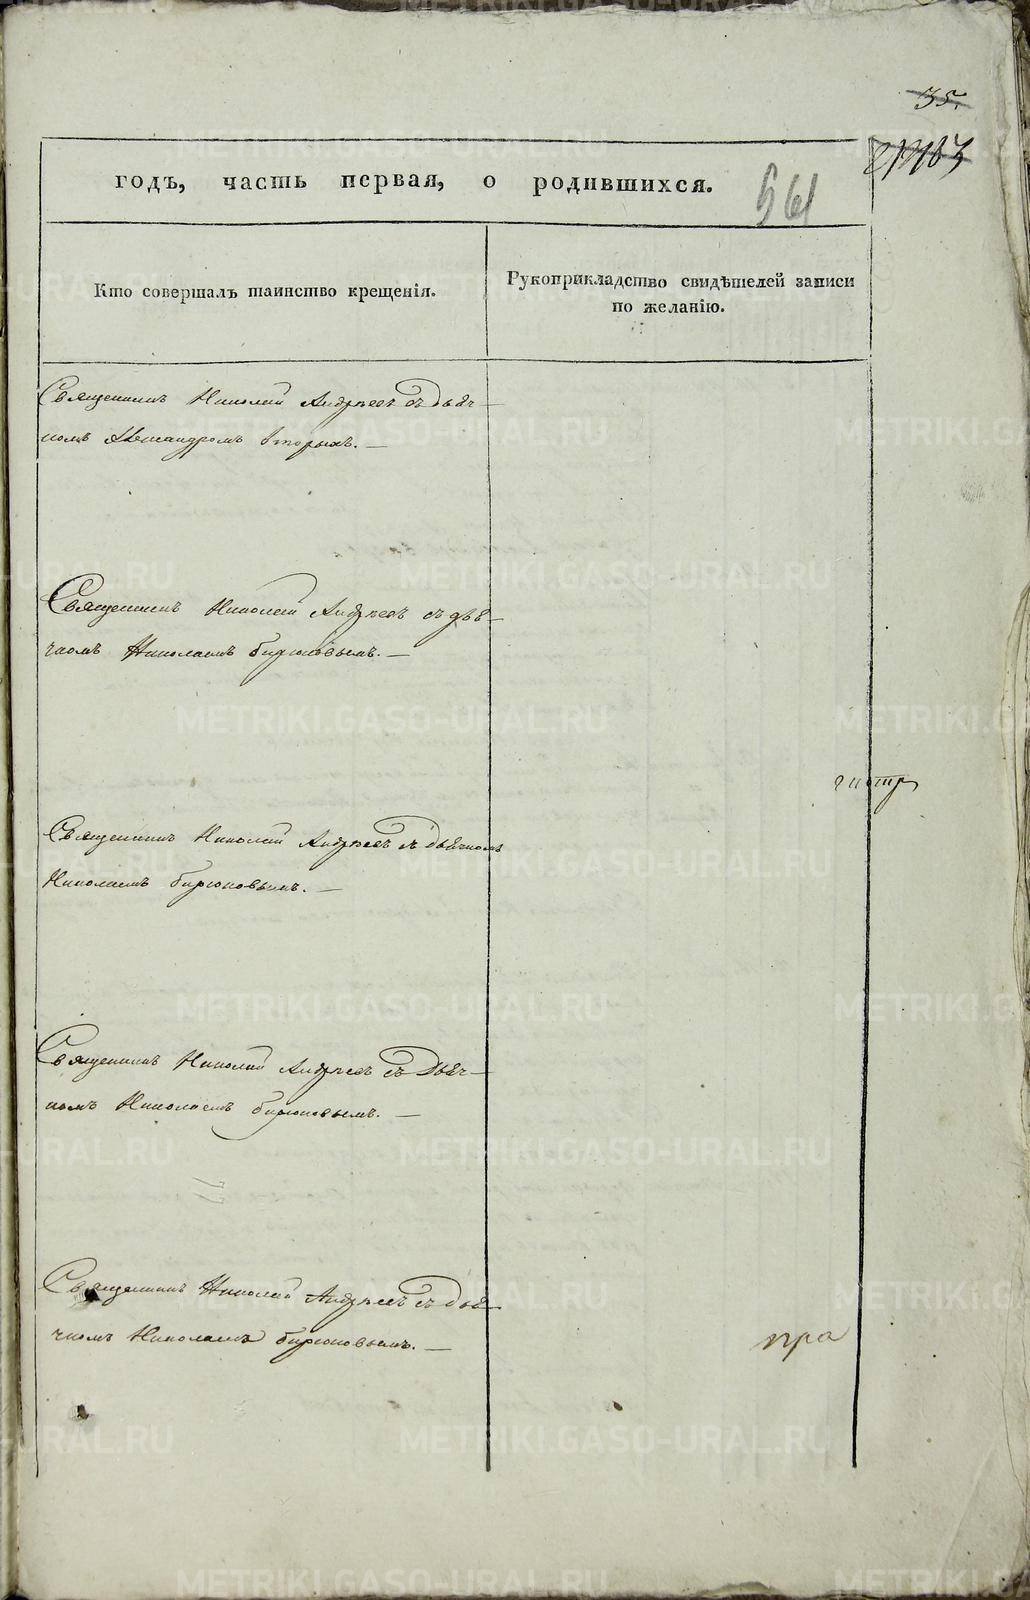 35.
561
годъ, часть первая, о родившихся.
Кто совершалъ таинство крещенія.
Рукоприкладство свидѣтелей записи
по желанію.
Священникъ Николай Андреевъ съ дьяч–
комъ Александромъ Вторыхъ. —
Священникъ Николай Андреевъ съ дья–
чкомъ Николаемъ Бирюковымъ. —
Священникъ Николай Андреевъ съ дьячкомъ
Николаемъ Бирюковымъ. —
Священникъ Николай Андреевъ съ дьяч–
комъ Николаемъ Бирюковымъ. —
Священникъ Николай Андреевъ съ дья–
чкомъ Николаемъ Бирюковымъ. —
пра
METRIKI.GASO-URAL.RU